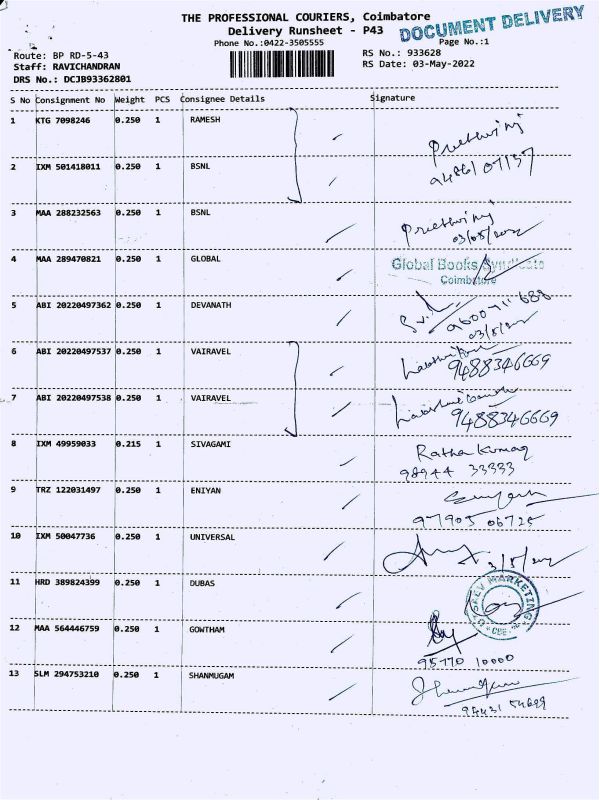 THE PROFESSIONAL COURIERS, Coimbatore
DOCUMENT DELIVERY
Delivery Runsheet - P43
Phone No.:0422-3505555
Page No.:1
Route: BP RD-5-43
RS No.: 933628
Staff: RAVICHANDRAN
RS Date: 03-May-2022
DRS No.: DCJB93362801
S No Consignment No Weight PCS Consignee Details Signature
1 KTG 7098246 0.250 1 RAMESH
2 IXM 501418011 0.250 1 BSNL
3 MAA 288232563 0.250 1 BSNL
03/05/2022
4 MAA 289470821 0.250 1 GLOBAL Global Books Syndicate
Coimbatore
5 ABI 20220497362 0.250 1 DEVANATH
6 ABI 20220497537 0.250 1 VAIRAVEL
9488346669
7 ABI 20220497538 0.250 1 VAIRAVEL
9488346669
8 IXM 49959033 0.215 1 SIVAGAMI Ratha Kumar
98944 33333
9 TRZ 122031497 0.250 1 ENIYAN
97905 06725
10 IXM 50047736 0.250 1 UNIVERSAL
3/5/2022
11 HRD 389824399 0.250 1 DUBAS
MARKETING
CBE
12 MAA 564446759 0.250 1 GOWTHAM
95770 10000
13 SLM 294753210 0.250 1 SHANMUGAM